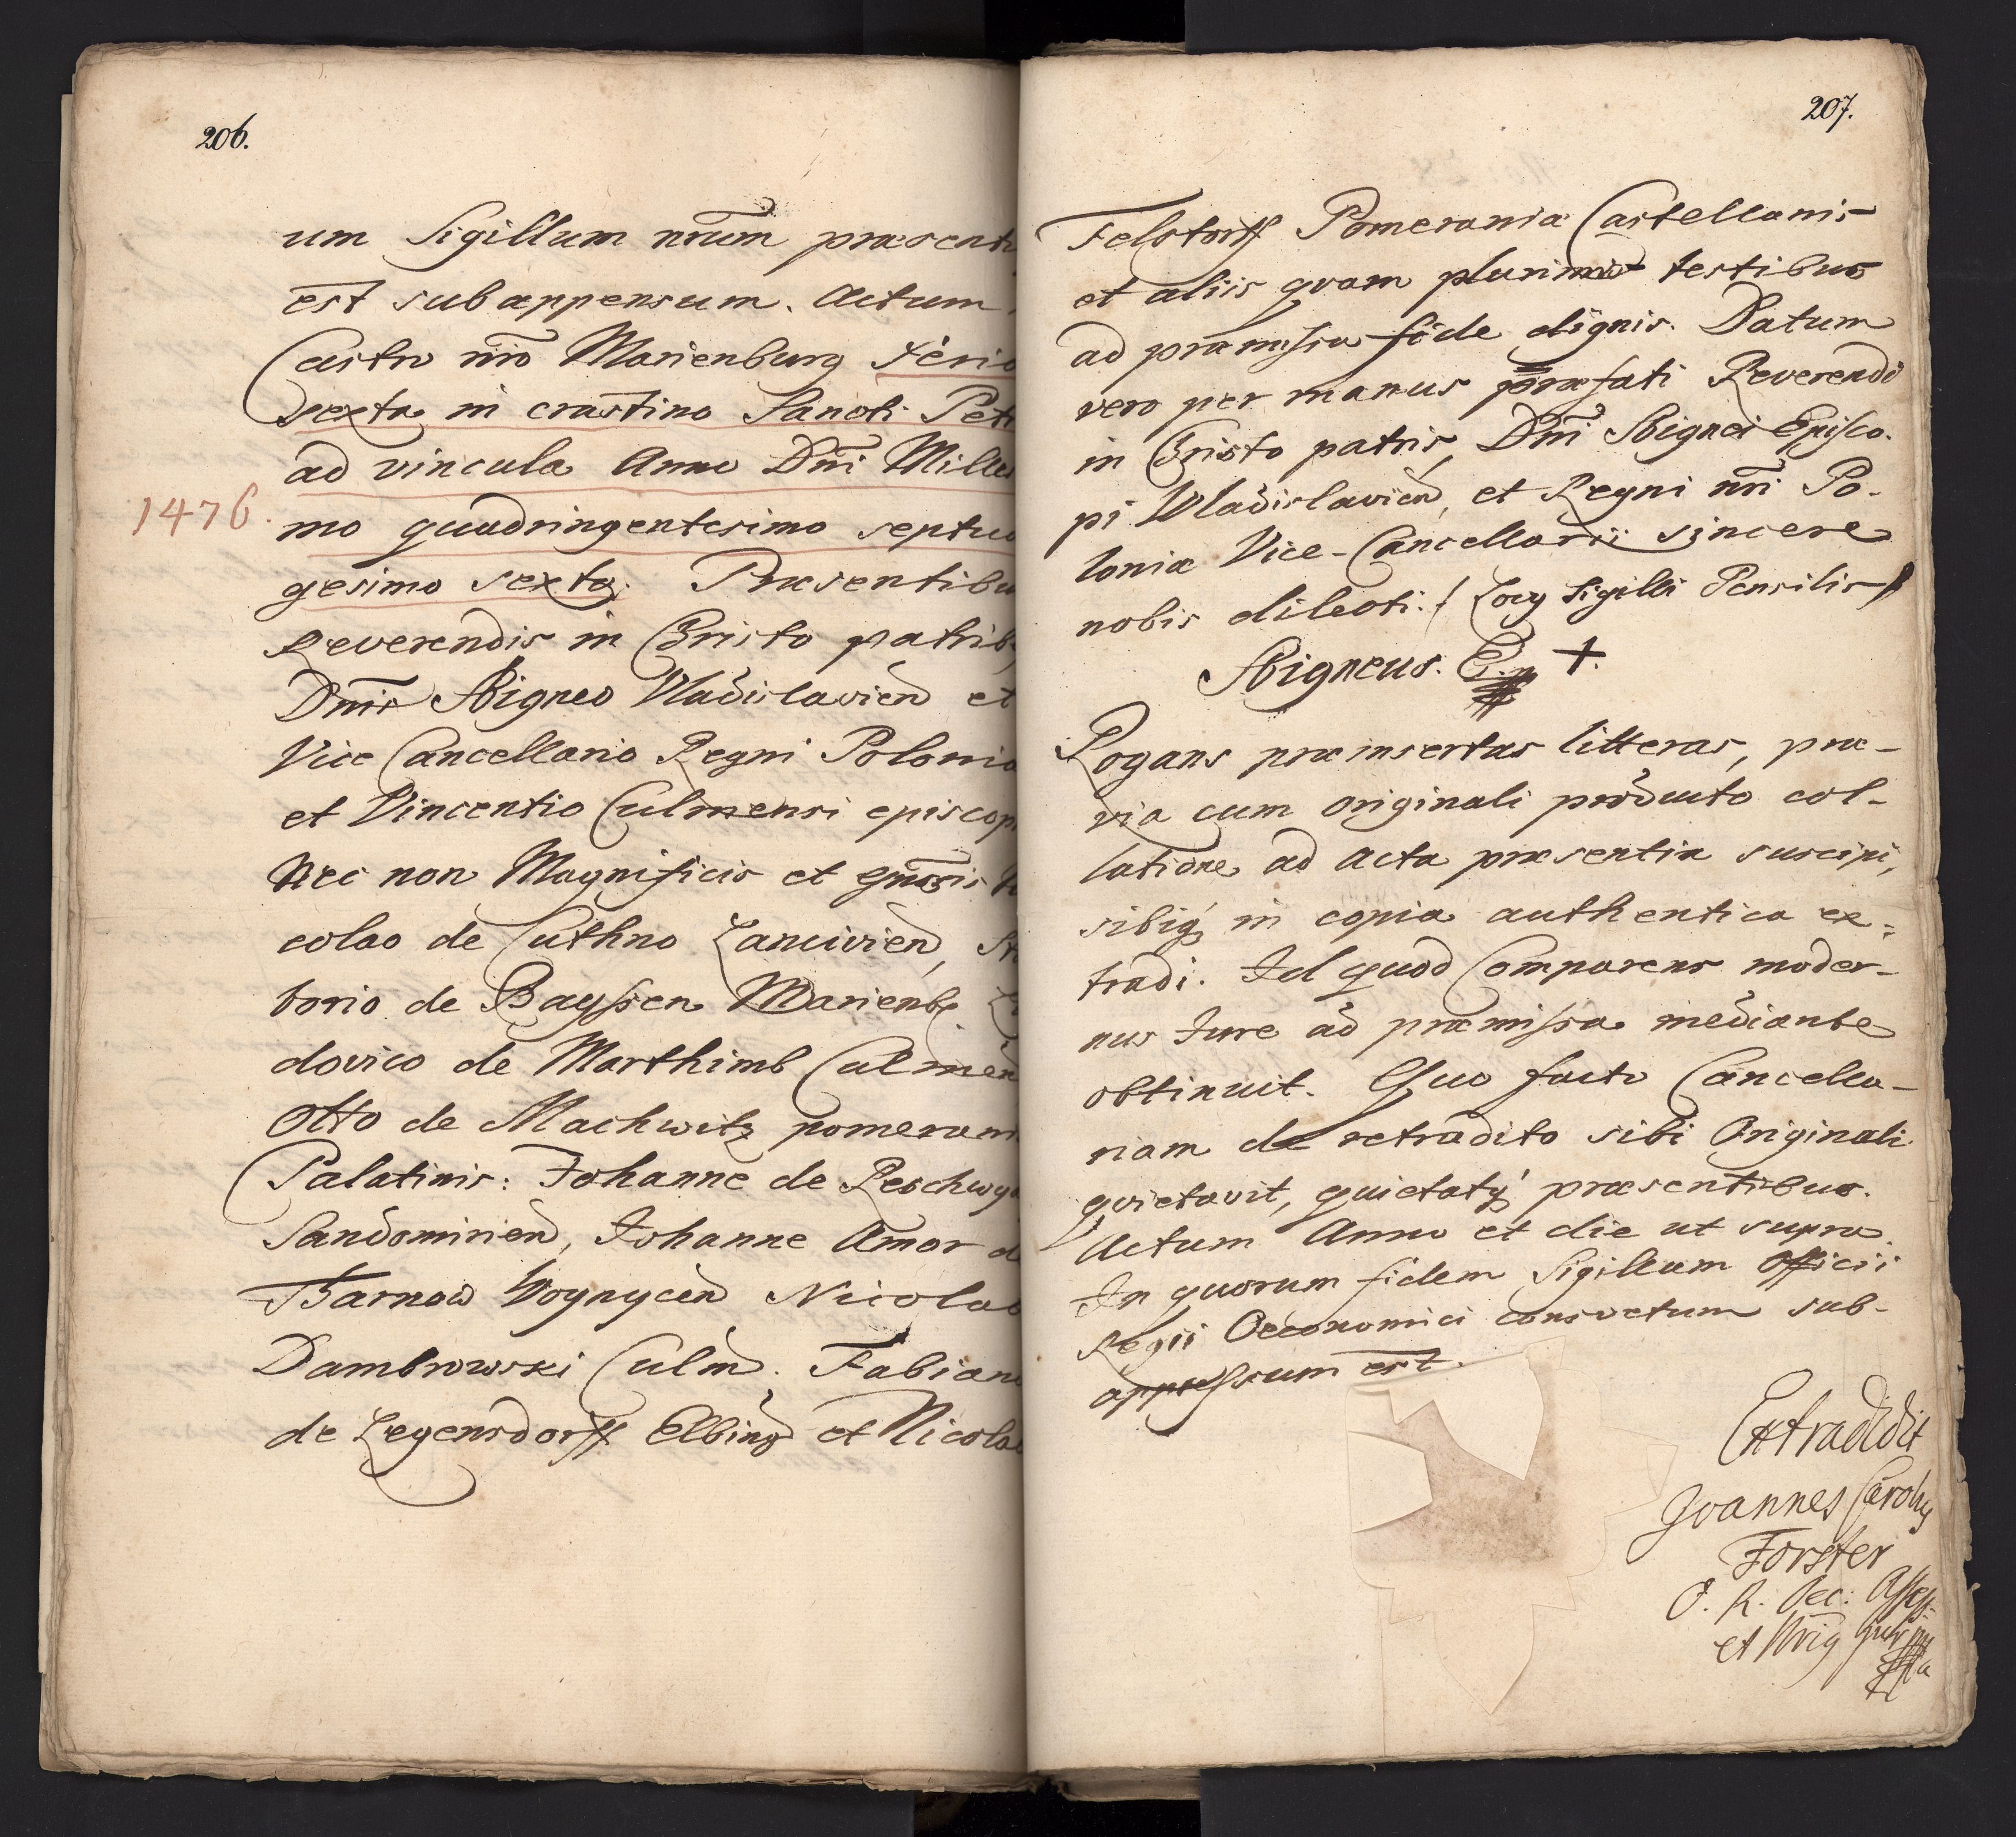 206.
um Sigillum nrum præsenti
est subappensum. Actum
Castro nro Marienburg Feria
sexta in crastino Sancti Petri
ad vincula Anno Dni Mille
1476.
mo quadringentesimo septua
gesimo sexto. Præsentibu
Reverendis in Christo patrib
Dnis Sbigneo Vladislavien et
Vice Cancellario Regni Poloniæ
et Vincentio Culmensi episcop
Nec non Magnificis et gnosis
colao de Cuthno Lancivien,
borio de Bayssen Marienb.
dovico de Morthimb Culmen
Otto de Machwitz pomeran
Palatinis: Johanne de Reschwy
Sandomirien, Johanne Amor d
Tarnow Woynycen Nicolao
Dambrowski Culm. Fabiano
de Legensdorff Elbing et Nicola
207.
Felstorff Pomeraniæ Castellanis
et aliis qvam plurimis testibus
ad præmissa fide dignis. Datum
vero per manus præfati Reverendi
in Christo patris, Dni Sbignei Episco-
pi Wladislavien, et Regni nri Po-
loniæ Vice-Cancellarii sincere
nobis dilecti. / Locq Sigilli Pensilis /
Sbigneus. Ep +.
Rogans præinsertas litteras, præ-
via cum originali producto col-
latione ad acta præsentia suscipi,
sibiq in copia authentica ex-
tradi. Id quod Comparens moder-
nus Jure ad præmissa mediante
obtinuit. Quo facto Cancella-
riam de retradito sibi Originali
qvietavit, quietatq præsentibus.
Actum Anno et die ut supra.
In quorum fidem Sigillum Officii
Regii Oeconomici consvetum sub-
appressum est.
Extradidit
Joannes Carolq
Forster
O. R. Oec: Assess:
et